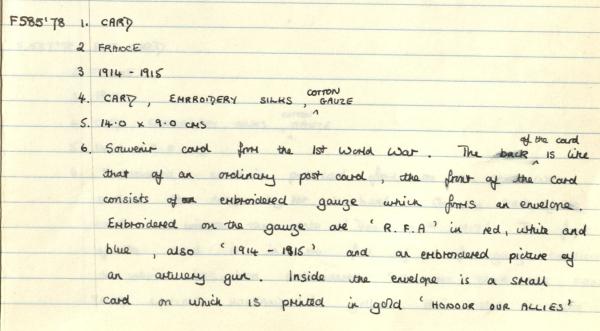 F585'78 1. CARD
2 FRANCE
3 1914 - 1915
4. CARD, EMBROIDERY SILKS, COTTON GAUZE
5. 14.0 x 9.0 CMS
6. Souvenir card from the 1st World War. The back of the card is like
that of an ordinary post card, the front of the card
consists of an embroidered gauze which forms an envelope.
Embroidered on the gauze are 'R.F.A' in red, white and
blue, also '1914 - 1915' and an embroidered picture of
an artillery gun. Inside the envelope is a small
card on which is printed in gold 'HONOUR OUR ALLIES'